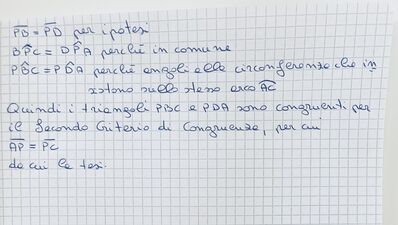 PB = PD per ipotesi
BP̂C = DP̂A perché in comune
PB̂C = PD̂A perché angoli alla circonferenza che in
sistono sullo stesso arco AC
Quindi i triangoli PBC e PDA sono congruenti per
il Secondo Criterio di Congruenza, per cui
AP = PC
da cui la tesi.